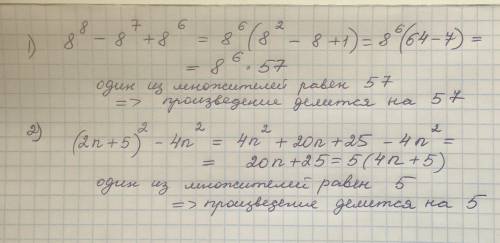 1) 8⁸ - 8⁷ + 8⁶ = 8⁶(8² - 8 + 1) = 8⁶(64 - 7) =
= 8⁶ · 57
один из множителей равен 57
=> произведение делится на 57
2) (2n + 5)² - 4n² = 4n² + 20n + 25 - 4n² =
= 20n + 25 = 5(4n + 5)
один из множителей равен 5
=> произведение делится на 5